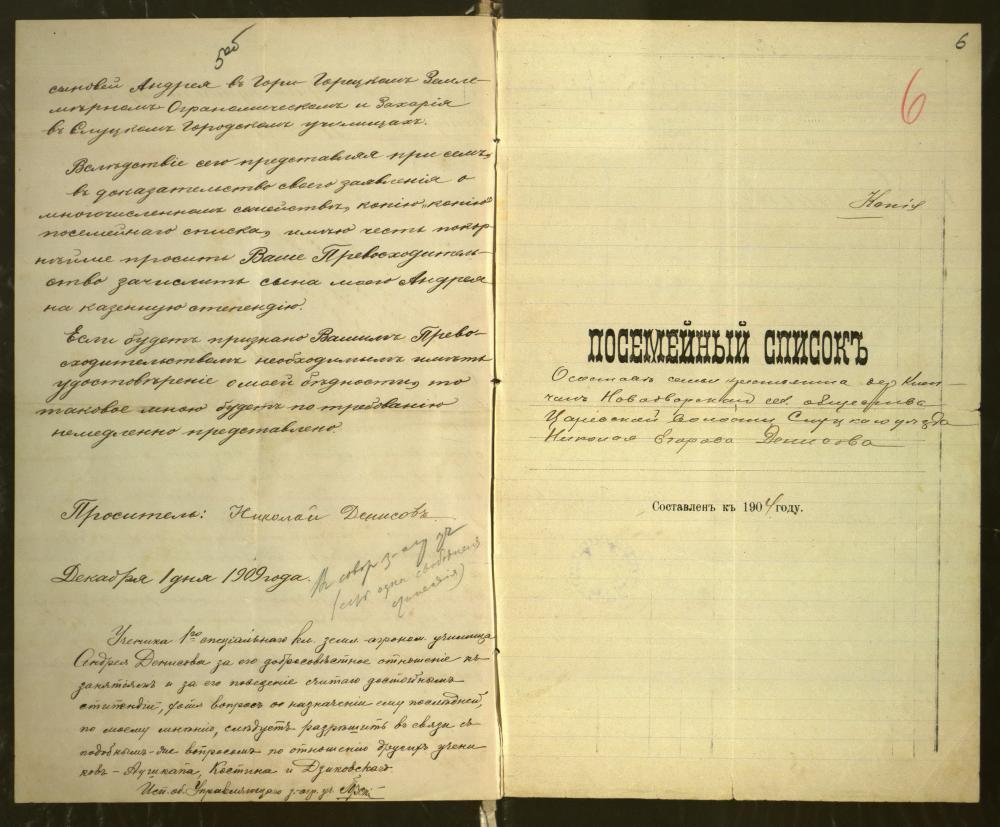 5об
сыновей Андрея въ Горы Горецкомъ Земле-
мѣрномъ Огрономическомъ и Захарія
въ Слуцкомъ Городскомъ училищахъ.
Вслѣдствіе сего представляя при семъ,
въ доказательство своего заявленія о
многочисленномъ семействѣ, копію "копіи"
посемейнаго списка, имѣю честь покор-
нѣйше просить Ваше Превосходитель-
ство зачислить сына моего Андрея
на казенную степендію.
Если будетъ признано Вашимъ Прево-
сходительствомъ необходимымъ имѣть
удостовѣреніе о моей бѣдности, то
таковое мною будетъ по требованію
немедленно представлено
Проситель: Николай Денисовъ
Декабря 1 дня 1909 года.
одна
Ученика 1го спеціальнаго кл. земл.-агроном. училища
Андрея Денисова за его добросовѣстное отношеніе къ
занятіямъ и за его поведеніе считаю достойнымъ
стипендіи, хотя вопросъ о назначеніи ему послѣдней,
по моему мнѣнію, слѣдуетъ разрѣшить въ связи съ
подобнымъ-же вопросомъ по отношенію другихъ учени-
ковъ - Костина и Дзиковскаго.
Исп. об. Управляющаго з.-агр. уч.
6
6
Копія
ПОСЕМЕЙНЫЙ СПИСОКЪ
О составѣ семьи крестьянина дер.
Новодворскаго сел. общества
Царевской волости Слуцкого уѣзда
Николая Егорова Денисова
Составленъ къ 1904 году.